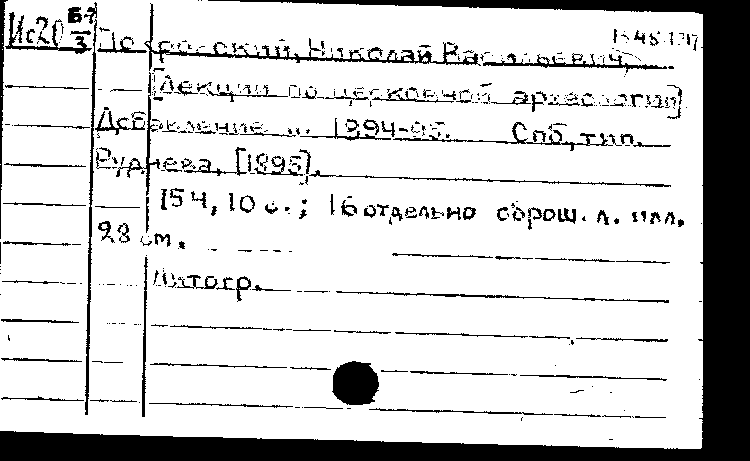 Ис20 Б-7/3
Покровский, Николай Васильевич,
[Лекции по церковной археологии]
Добавление и. 1894-95. Спб, тип.
Руднева, [1895].
154, 10 с.; 16 отдельно сброш. л. илл.
28 см.
Литогр.